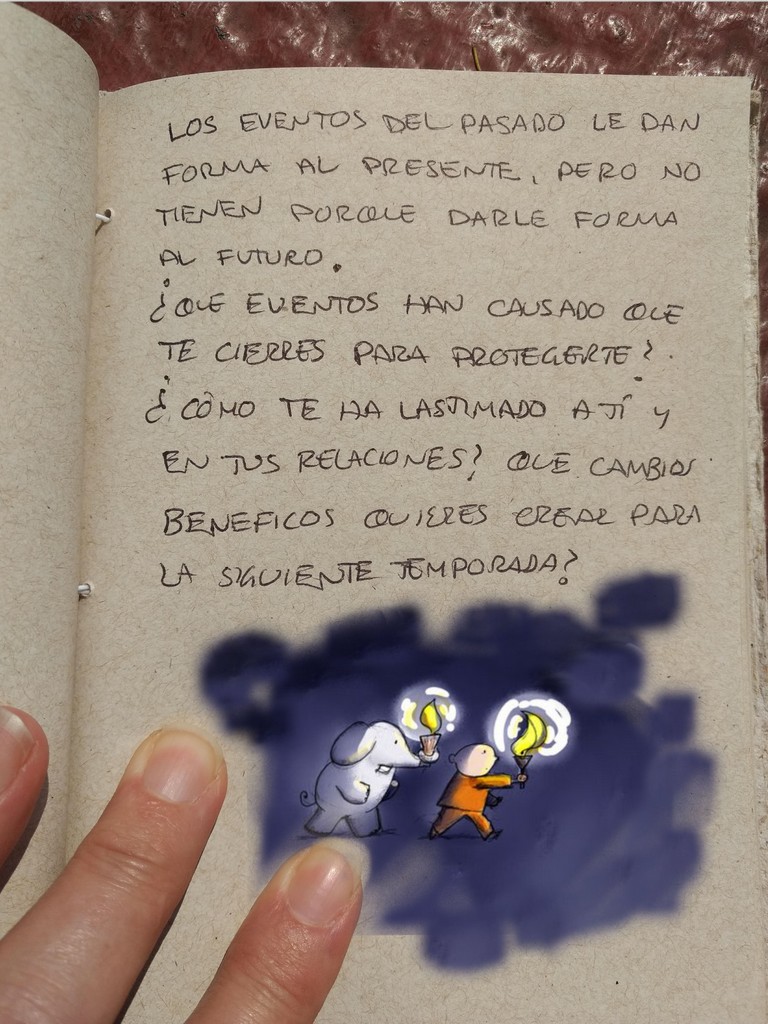 LOS EVENTOS DEL PASADO LE DAN
FORMA AL PRESENTE, PERO NO
TIENEN PORQUE DARLE FORMA
AL FUTURO.
¿QUE EVENTOS HAN CAUSADO QUE
TE CIERRES PARA PROTEGERTE?
¿CÓMO TE HA LASTIMADO A TÍ Y
EN TUS RELACIONES? QUE CAMBIOS
BENEFICOS QUIERES CREAR PARA
LA SIGUIENTE TEMPORADA?